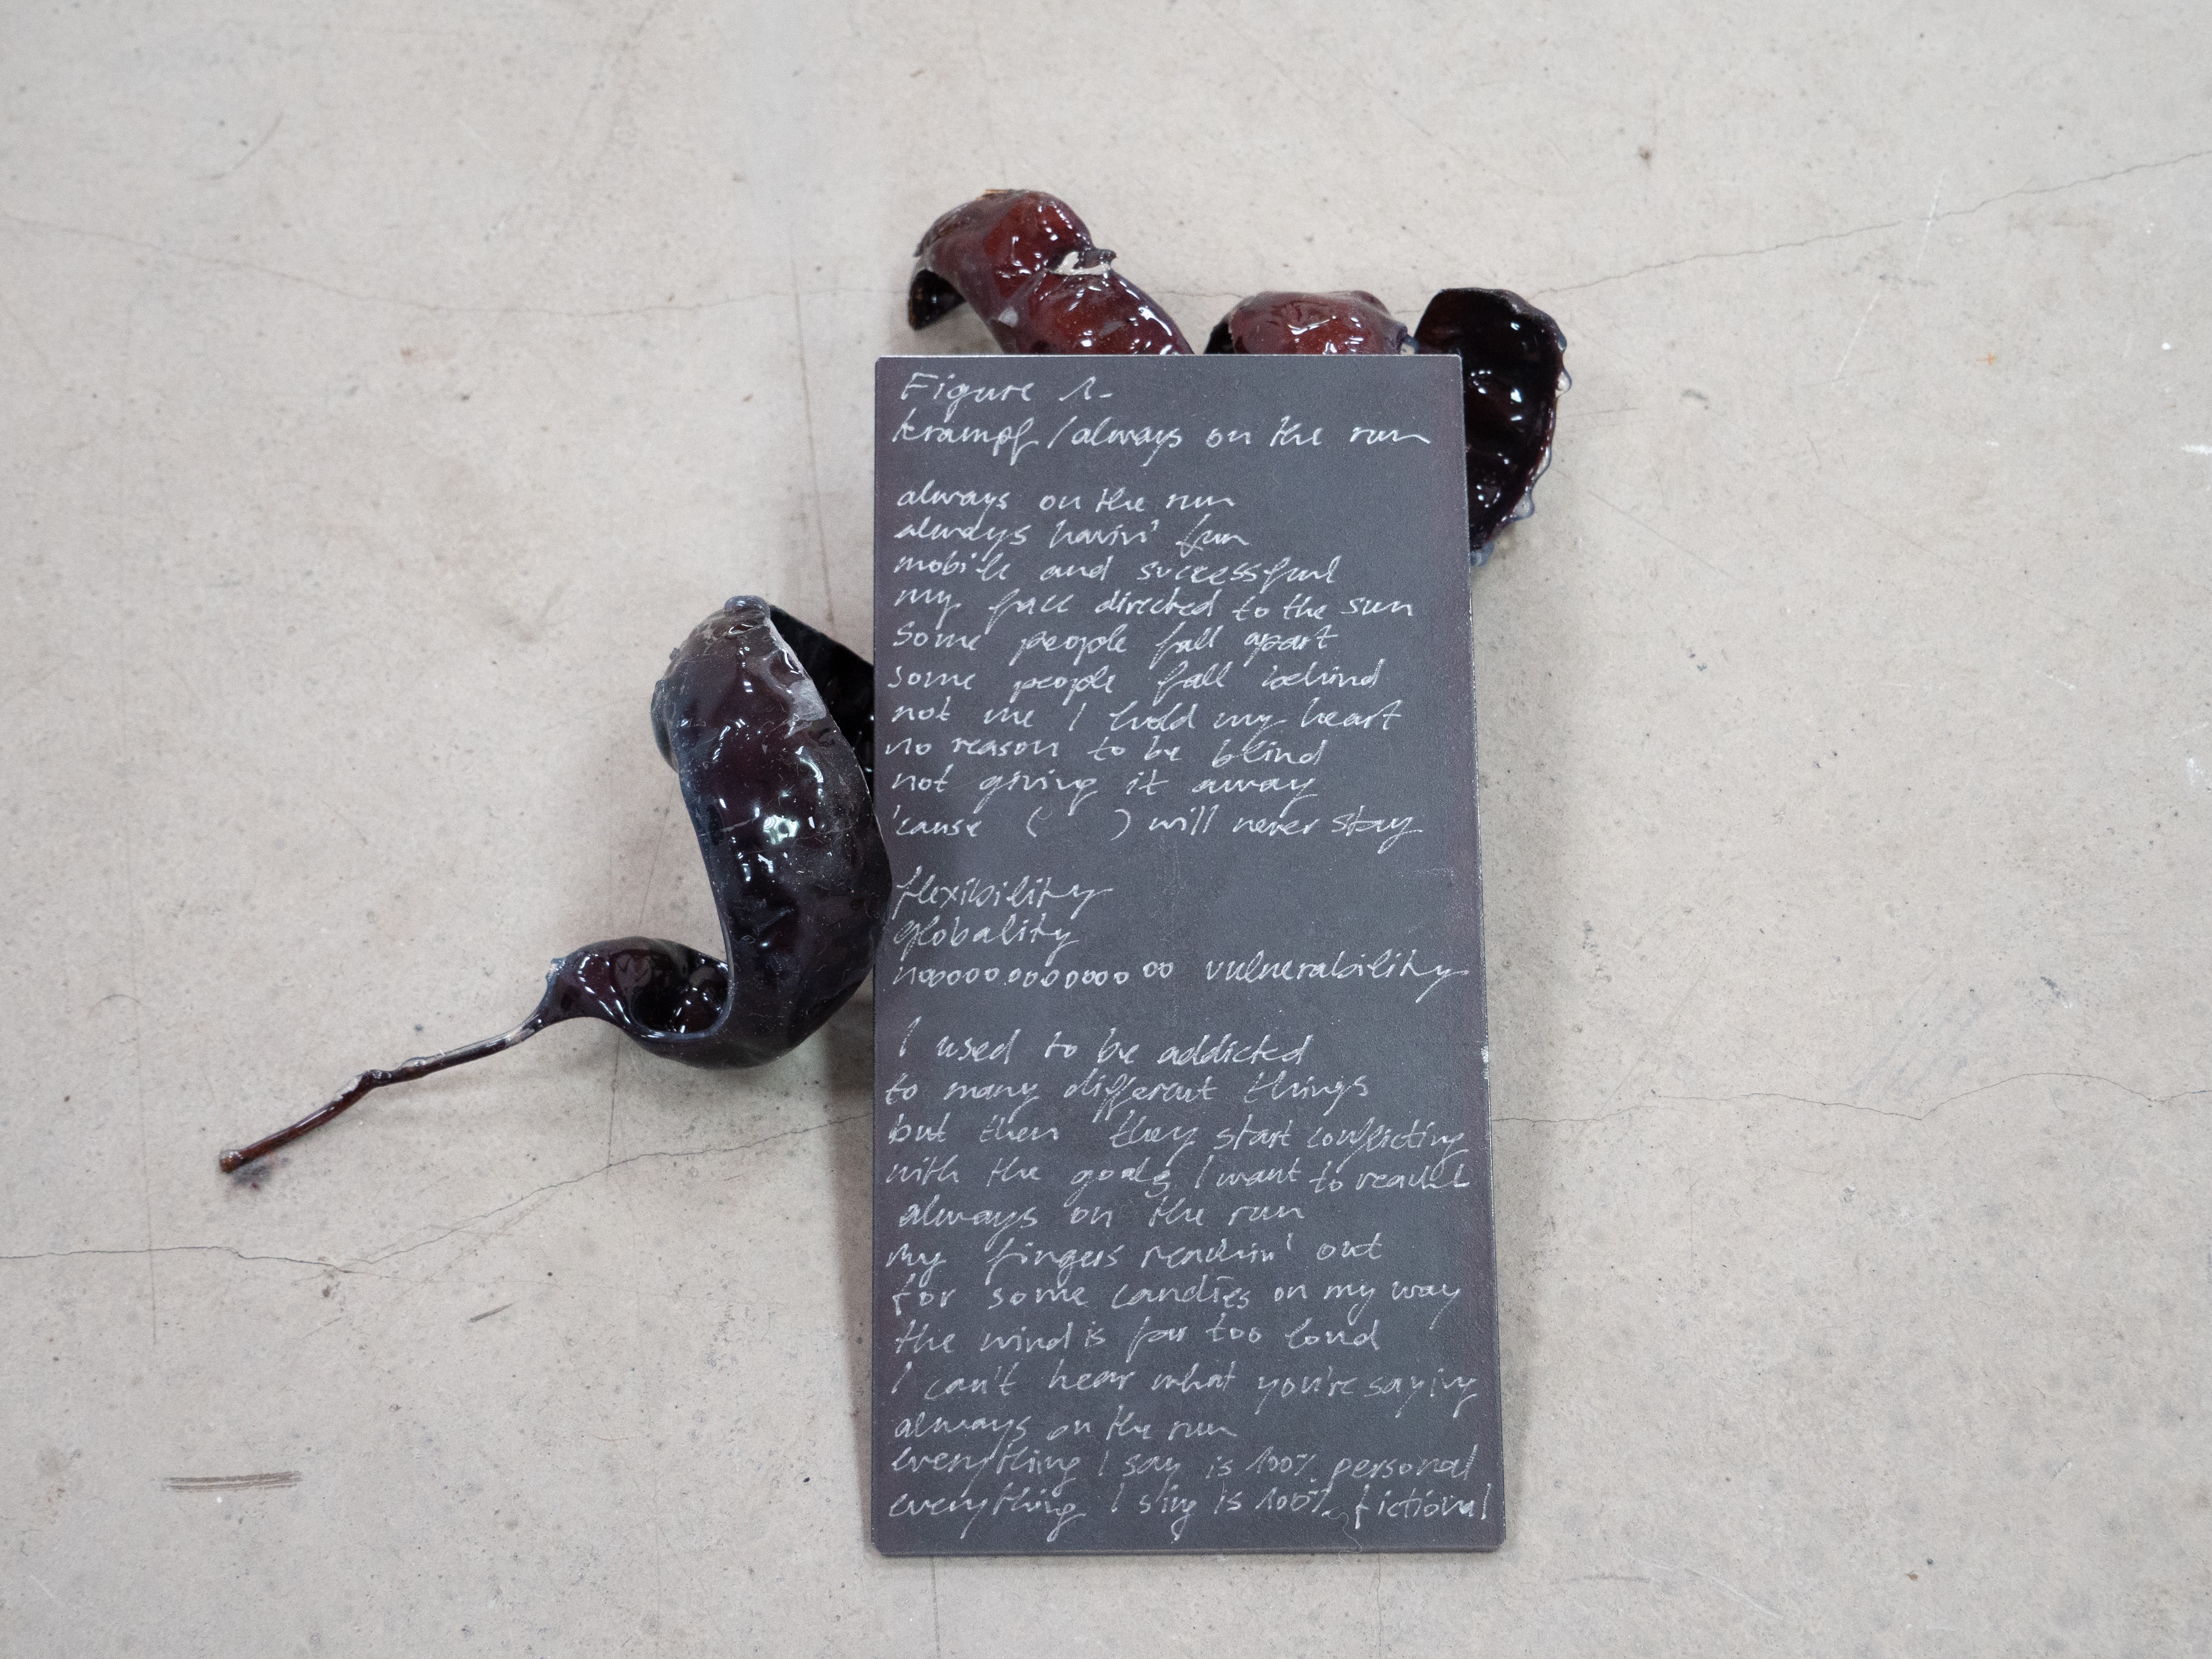 Figure 1.
krampf / always on the run
always on the run
always havin' fun
mobile and successful
my face directed to the sun
Some people fall apart
some people fall behind
not me I hold my heart
no reason to be blind
not giving it away
'cause (     ) will never stay
flexibility
globality
noooooooooooooo vulnerability
I used to be addicted
to many different things
but then they start conflicting
with the goals I want to reach
always on the run
my fingers reachin' out
for some candies on my way
the wind is far too loud
I can't hear what you're saying
always on the run
everything I say is 100% personal
everything I sing is 100% fictional